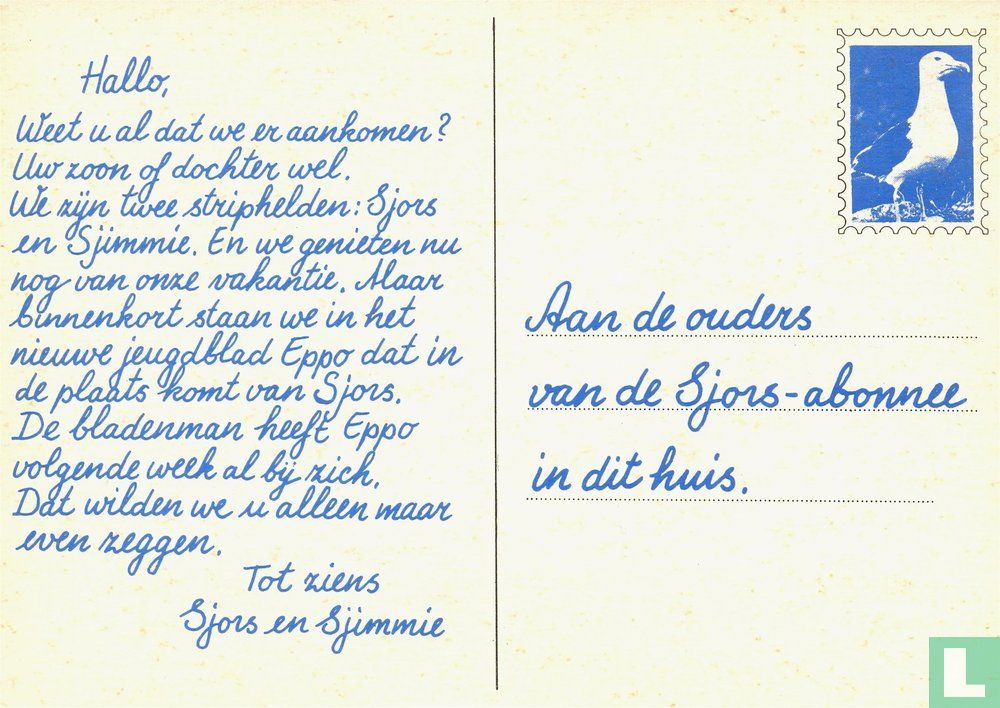 Hallo,
Weet u al dat we er aankomen?
Uw zoon of dochter wel.
We zijn twee striphelden: Sjors
en Sjimmie. En we genieten nu
nog van onze vakantie. Maar
binnenkort staan we in het
nieuwe jeugdblad Eppo dat in
de plaats komt van Sjors.
De bladenman heeft Eppo
volgende week al bij zich.
Dat wilden we u alleen maar
even zeggen.
Tot ziens
Sjors en Sjimmie
Aan de ouders
van de Sjors-abonnee
in dit huis.
L